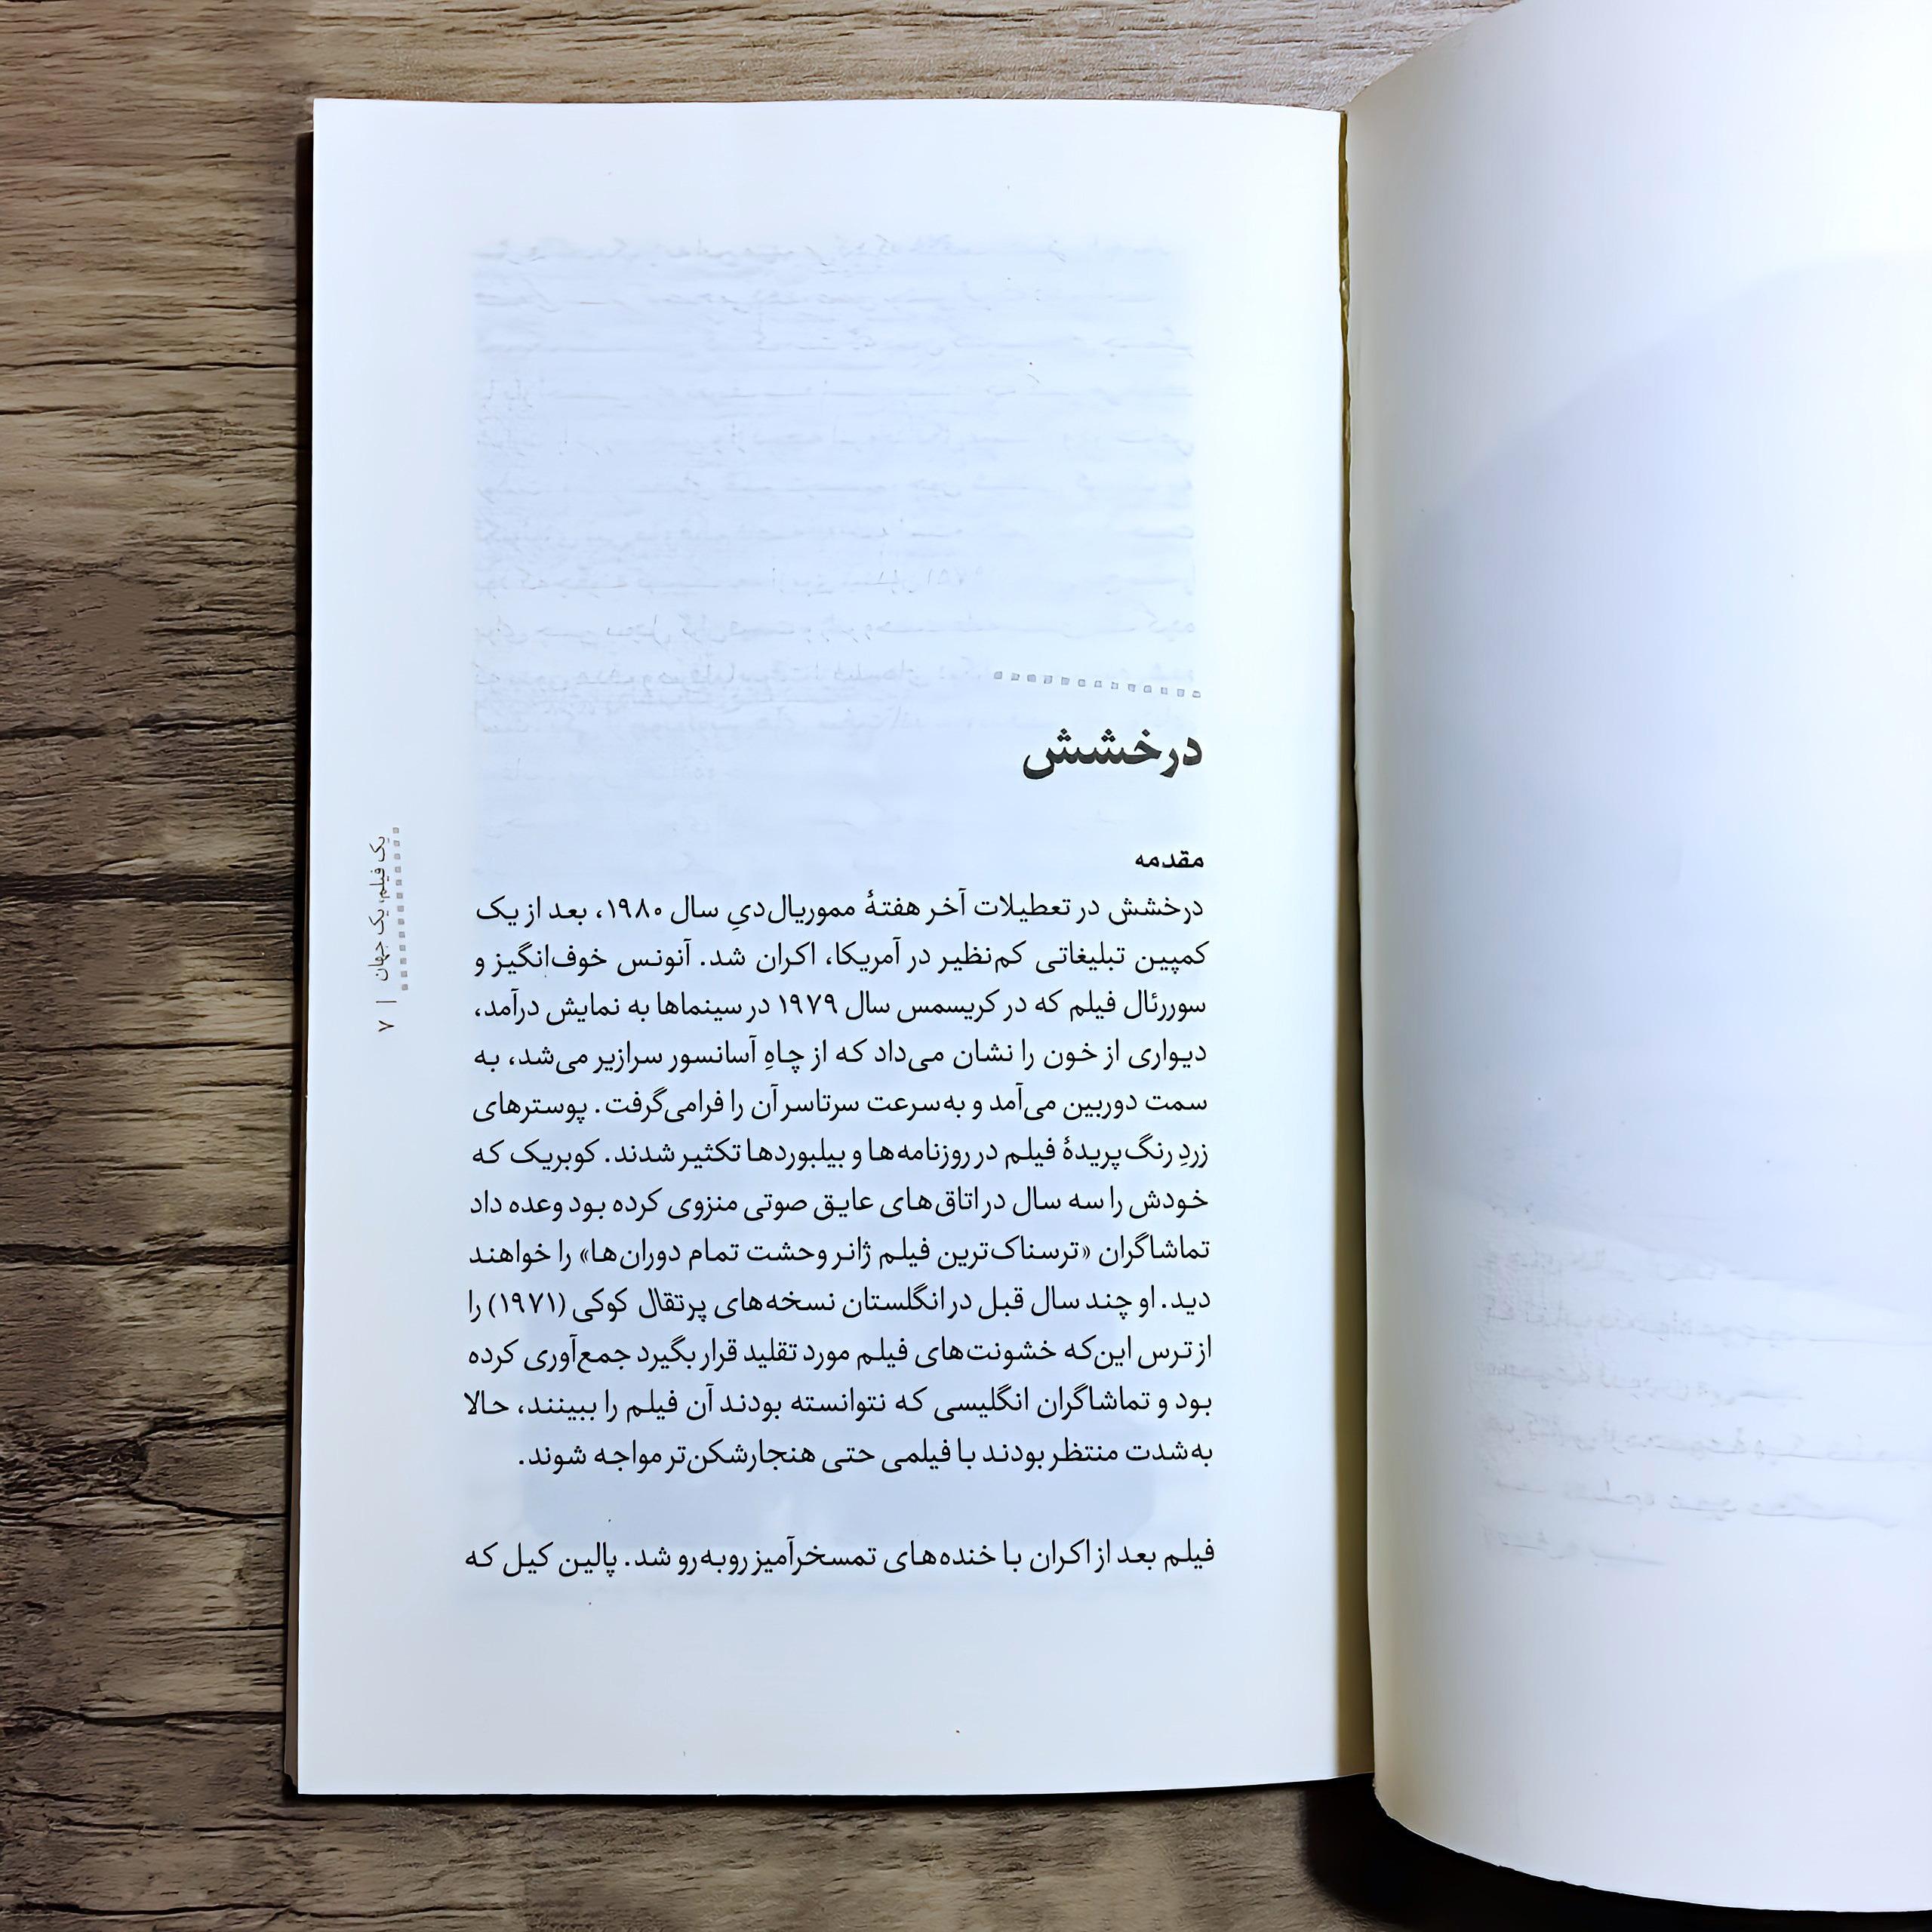 درخشش
مقدمه
درخشش در تعطیلات آخر هفتهٔ مموریال‌دیِ سال ۱۹۸۰، بعد از یک
کمپین تبلیغاتی کم‌نظیر در آمریکا، اکران شد. آنونس خوف‌انگیز و
سوررئال فیلم که در کریسمس سال ۱۹۷۹ در سینماها به نمایش درآمد،
دیواری از خون را نشان می‌داد که از چاهِ آسانسور سرازیر می‌شد، به
سمت دوربین می‌آمد و به‌سرعت سرتاسر آن را فرامی‌گرفت. پوسترهای
زردِ رنگ‌پریدهٔ فیلم در روزنامه‌ها و بیلبوردها تکثیر شدند. کوبریک که
خودش را سه سال در اتاق‌های عایق صوتی منزوی کرده بود وعده داد
تماشاگران «ترسناک‌ترین فیلم ژانر وحشت تمام دوران‌ها» را خواهند
دید. او چند سال قبل در انگلستان نسخه‌های پرتقال کوکی (۱۹۷۱) را
از ترس این‌که خشونت‌های فیلم مورد تقلید قرار بگیرد جمع‌آوری کرده
بود و تماشاگران انگلیسی که نتوانسته بودند آن فیلم را ببینند، حالا
به‌شدت منتظر بودند با فیلمی حتی هنجارشکن‌تر مواجه شوند.
فیلم بعد از اکران با خنده‌های تمسخرآمیز روبه‌رو شد. پالین کیل که
یک فیلم، یک جهان | ۷